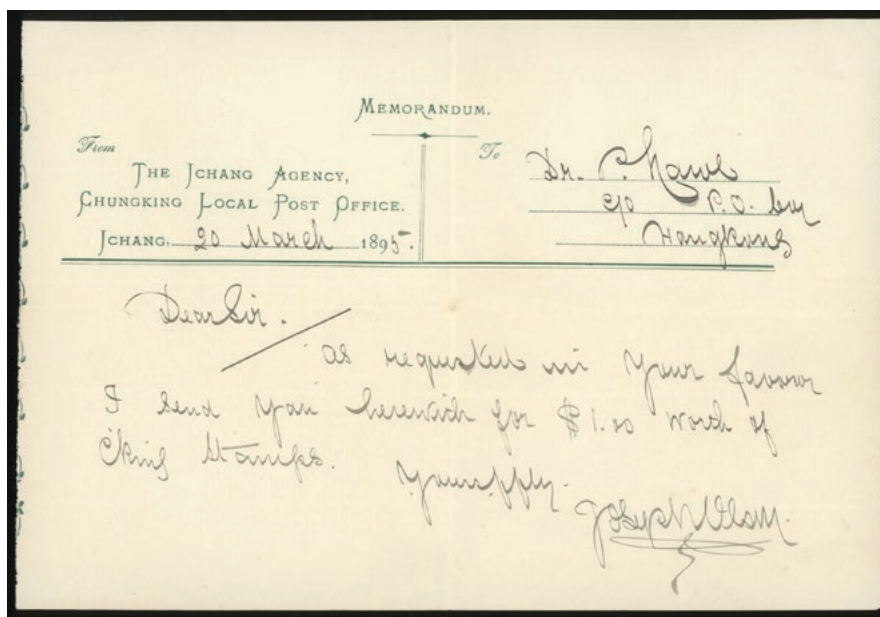 MEMORANDUM.
From
THE ICHANG AGENCY,
CHUNGKING LOCAL POST OFFICE.
ICHANG, 20 March 1895.
To
Dr. P.
c/o P.O. box
Hongkong
Dear Sir.
as requested in your favour
I send you herewith for $1.00 worth of
C'King Stamps.
Yours
Joseph